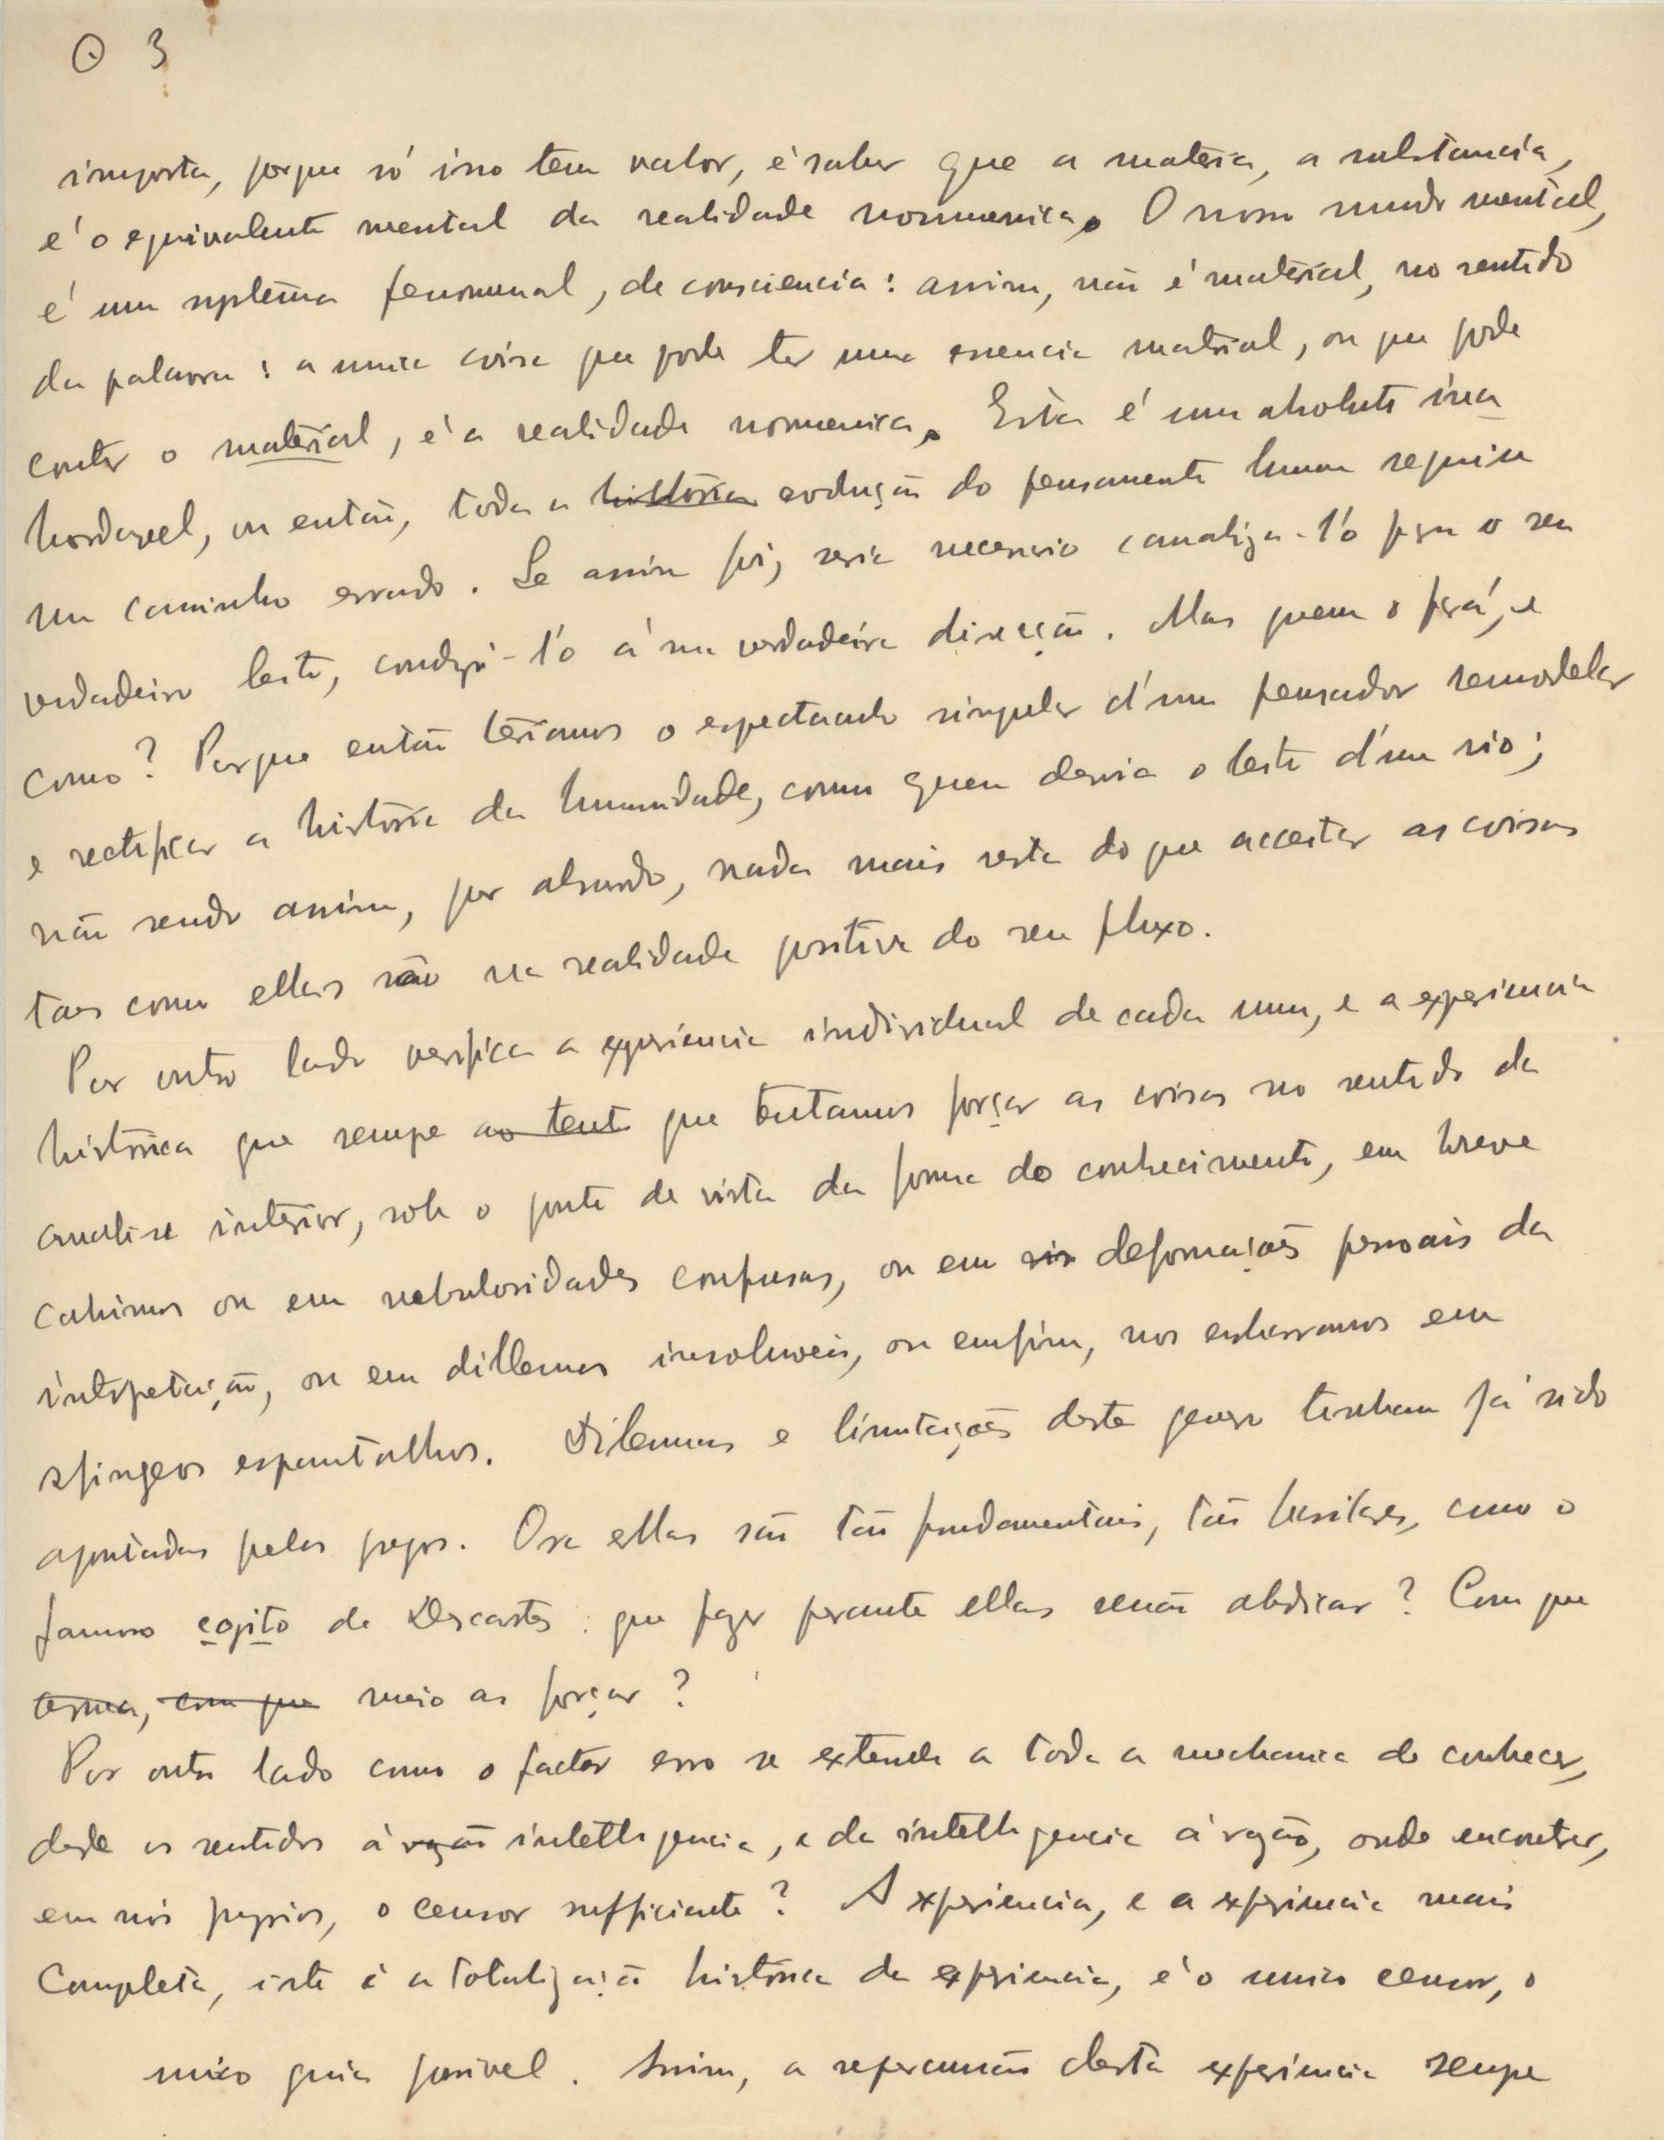 ⊙ 3
importa, porque só isso tem valor, é saber que a materia, a substancia,
é o equivalente mental da realidade noumenica. O nosso mundo mental,
é um systema fenomenal, de consciencia: assim, não é material, no sentido
da palavra: a unica coisa que pode ter uma essencia material, ou que pode
conter o material, é a realidade noumenica. Esta é um absoluto ina
bordavel, ou então, toda a historia evolução do pensamento humano seguiu
um caminho errado. Se assim foi, seria necessario canaliza-l'o para o seu
verdadeiro leito, conduzi-l'o á sua verdadeira direcção. Mas quem o fará, e
como? Porque então teriamos o espectaculo singular d'um pensador remodelar
e rectificar a historia da humanidade, como quem desvia o leito d'um rio;
não sendo assim, por absurdo, nada mais resta do que acceitar as coisas
taes como ellas são na realidade positiva do seu fluxo.
Por outro lado verifica a experiencia individual de cada um, e a experiencia
historica que sempre ao tent que tentamos forçar as coisas no sentido da
analise interior, sob o ponto de vista da forma do conhecimento, em breve
cahimos ou em nebulosidades confusas, ou em deformações pessoais da
interpetação, ou em dillemas insoluveis, ou emfim, nos esbarramos em
sfingeos espantalhos. Dilemmas e limitações deste genero tinham já sido
apontadas pelos gregos. Ora ellas são tão fundamentais, tão basilares, como o
famoso cogito de Descartes: que fazer perante ellas senão abdicar? Com que
terma, com que meio as forçar?
Por outro lado como o factor erro se extende a toda a mechanica do conhecer,
desde os sentidos á razão intelligencia, e da intelligencia á razão, onde encontrar,
em nós proprios, o censor sufficiente? A experiencia, e a experiencia mais
completa, isto é a totalização historica da experiencia, é o unico censor, o
unico guia possivel. Assim, a repercussão desta experiencia sempre